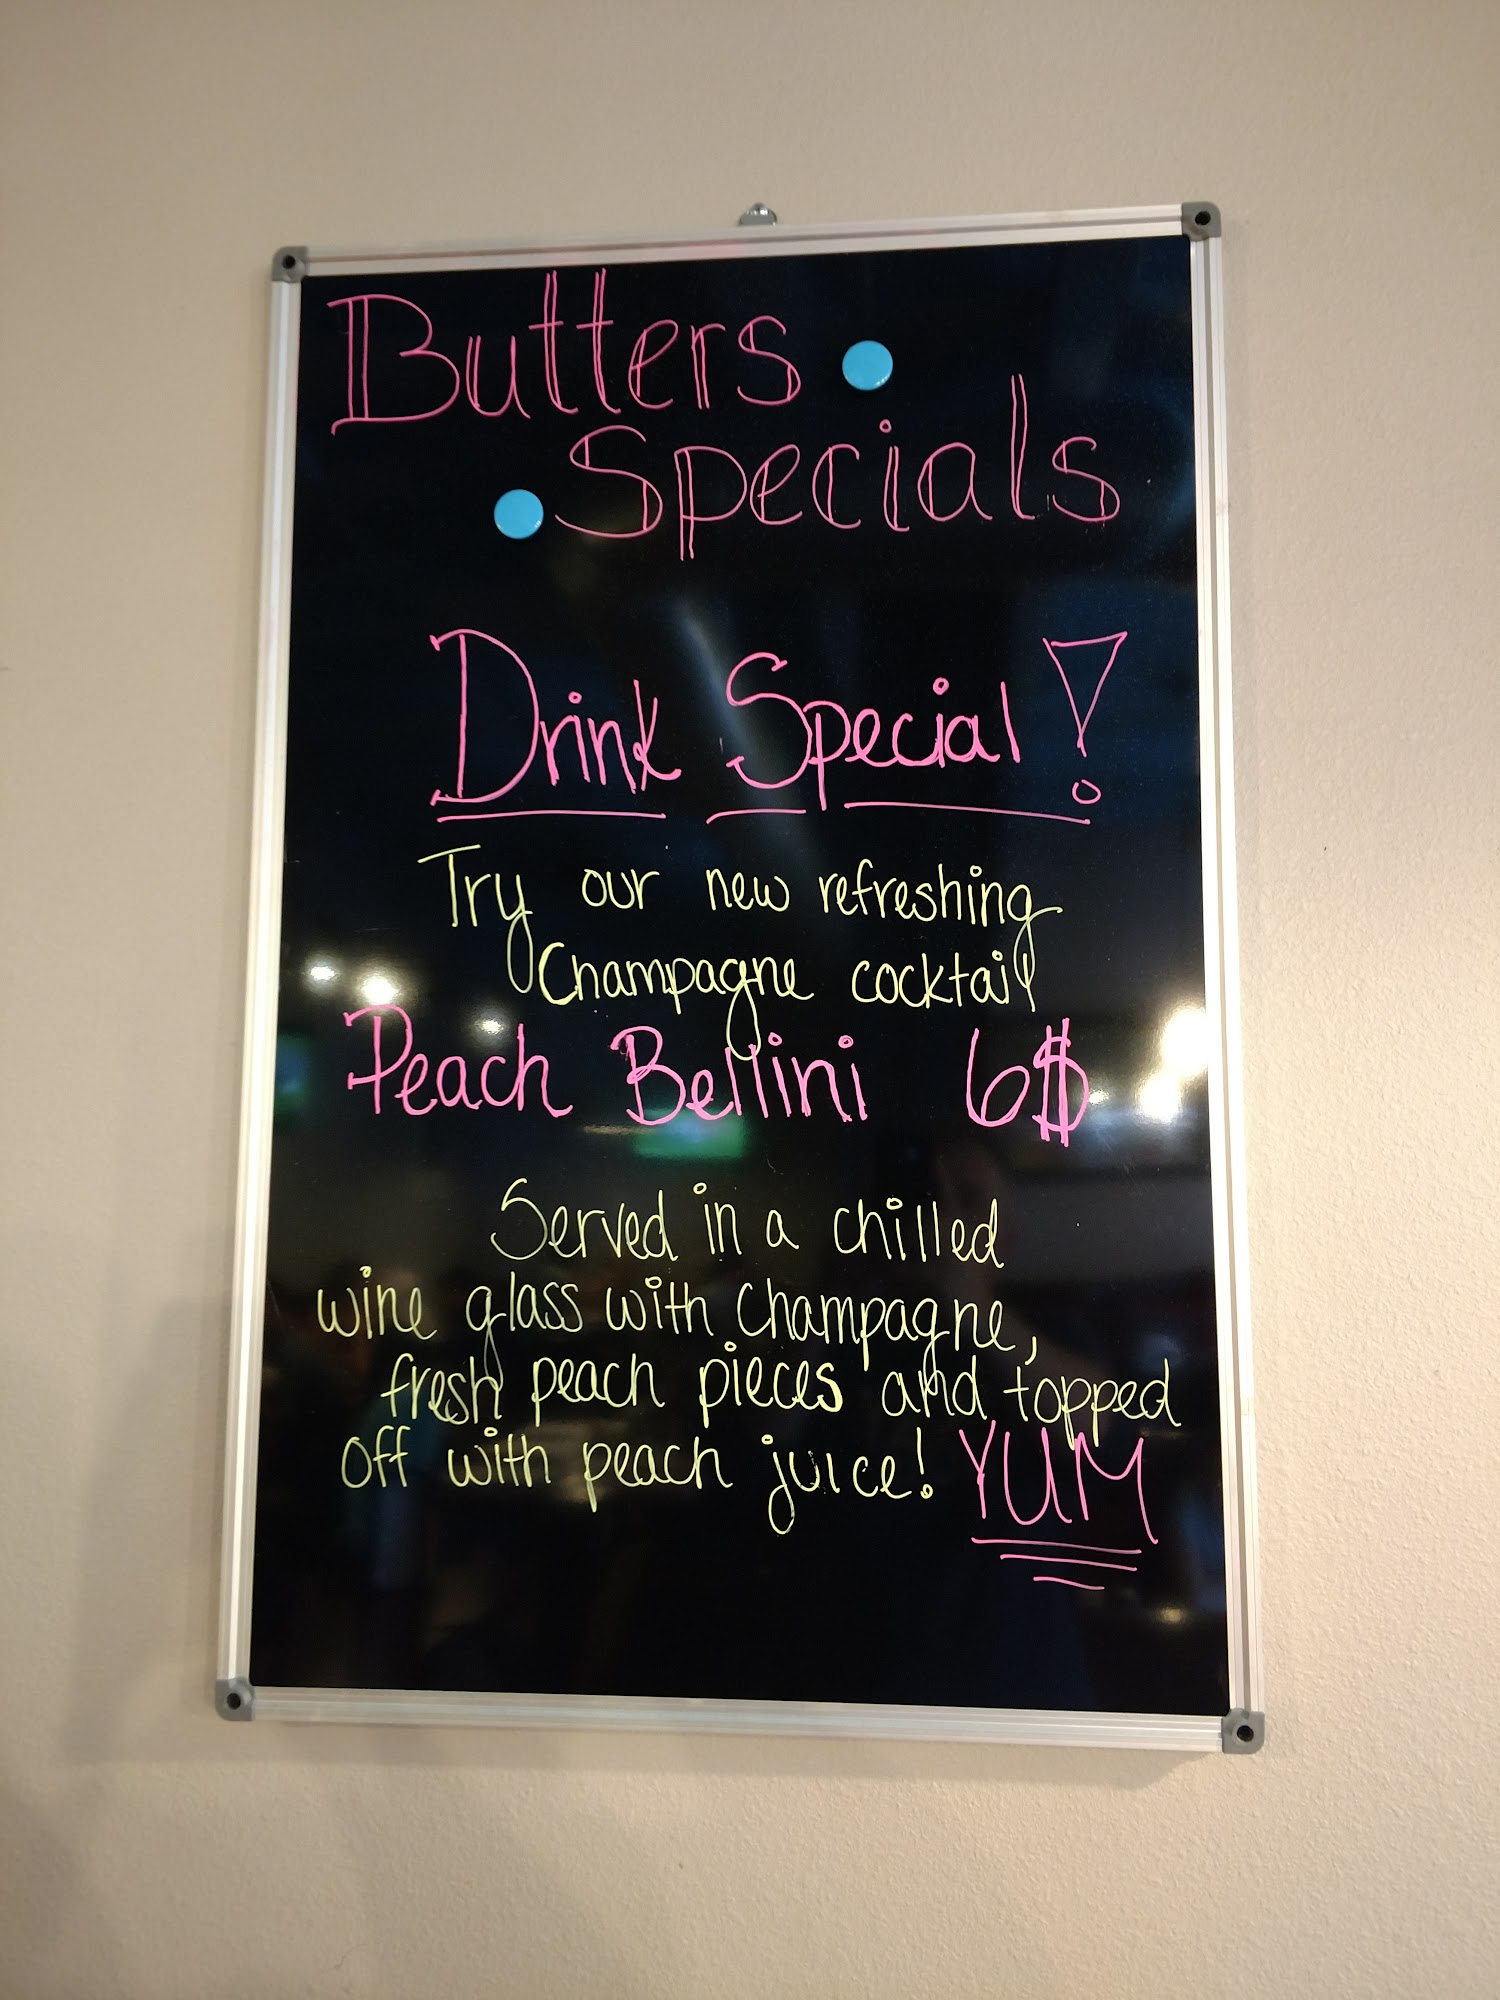 Butters
Specials
Drink Special!
Try our new refreshing
Champagne cocktail
Peach Bellini 6$
Served in a chilled
wine glass with champagne,
fresh peach pieces and topped
off with peach juice! YUM